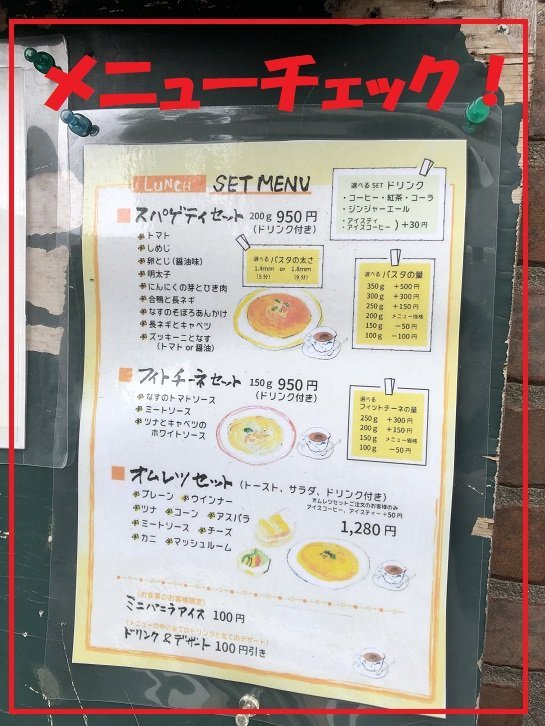 メニューチェック！
LUNCH SET MENU
選べる SET ドリンク
・コーヒー・紅茶・コーラ
・ジンジャーエール
・アイスティ
・アイスコーヒー ) +30円
スパゲティセット 200g 950円
(ドリンク付き)
トマト
しめじ
卵とじ (醤油味)
明太子
にんにくの芽とひき肉
合鴨と長ネギ
なすのそぼろあんかけ
長ネギとキャベツ
ズッキーニとなす
(トマト or 醤油)
選べる パスタの太さ
1.4mm or 1.8mm
(5分) (9分)
選べる パスタの量
350g +500円
300g +300円
250g +150円
200g メニュー価格
150g −50円
100g −100円
フィトチーネセット 150g 950円
(ドリンク付き)
なすのトマトソース
ミートソース
ツナとキャベツの
ホワイトソース
選べる
フィットチーネの量
250g +300円
200g +150円
150g メニュー価格
100g −50円
オムレツセット (トースト、サラダ、ドリンク付き)
オムレツセットご注文のお客様のみ
アイスコーヒー、アイスティー +50円
1,280円
プレーン ウインナー
ツナ コーン アスパラ
ミートソース チーズ
カニ マッシュルーム
(お食事のお客様限定)
ミニバニラアイス 100円
(メニューの中の全てのドリンクと全てのデザート)
ドリンク&デザート 100円引き